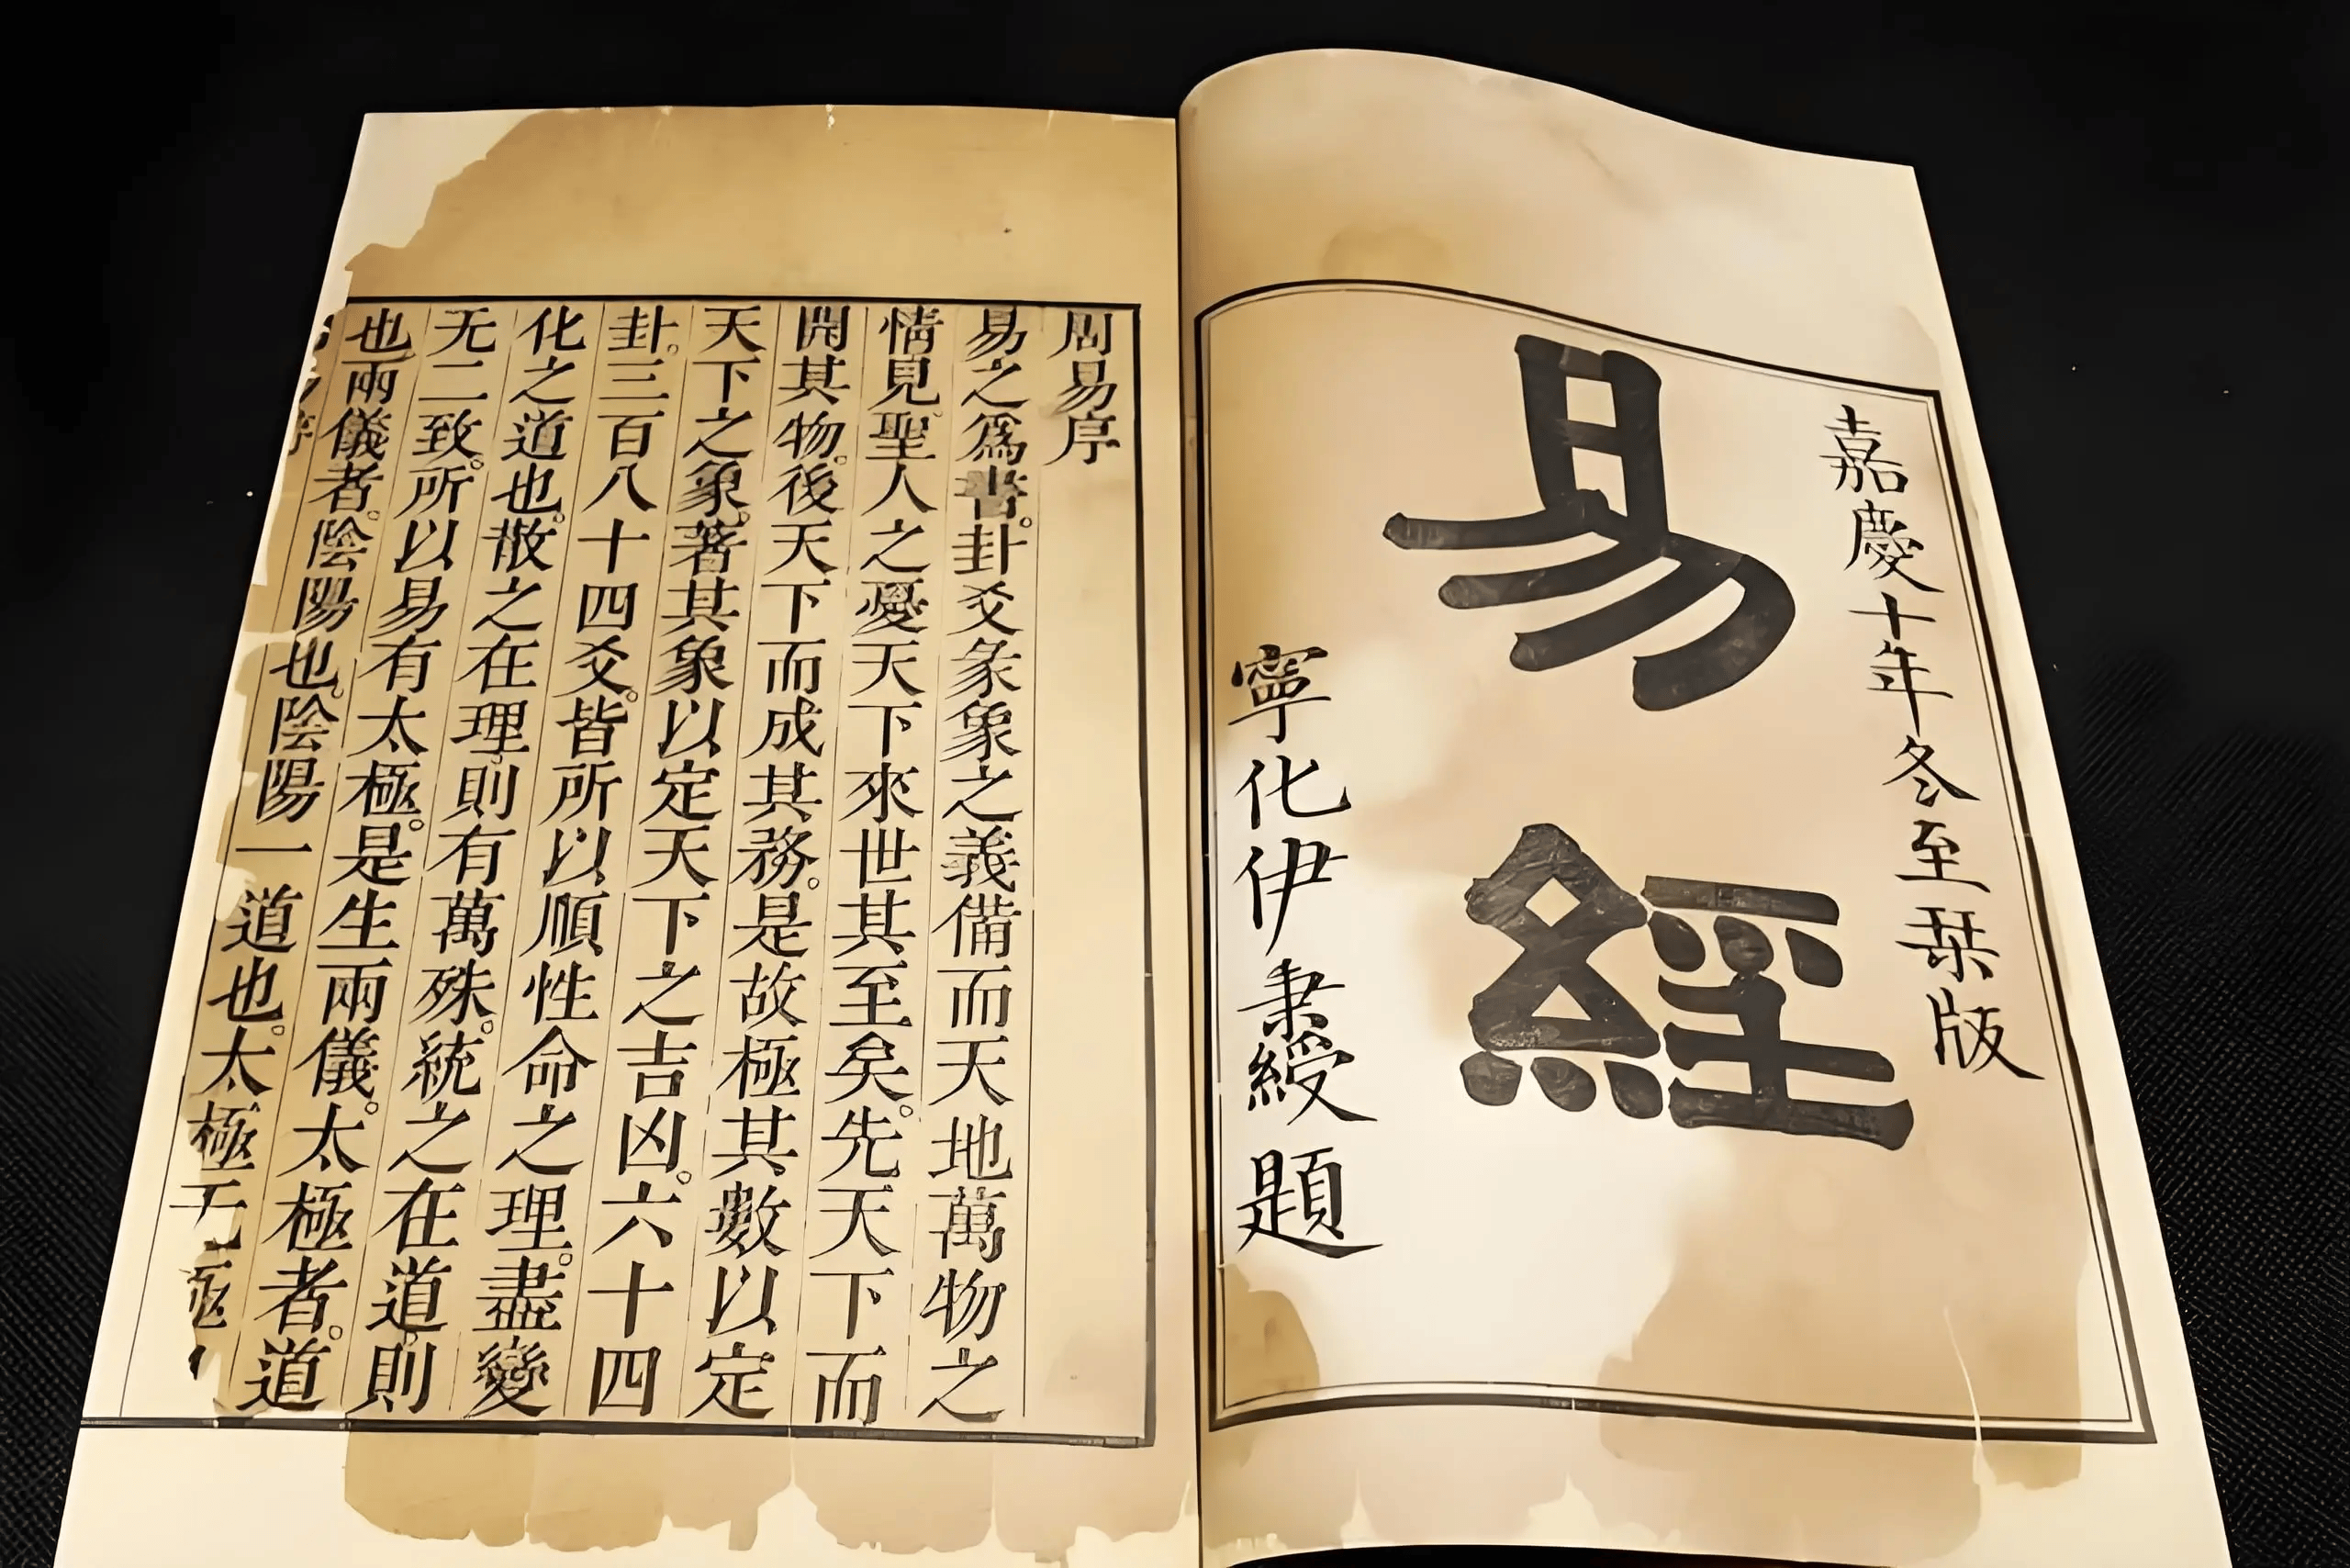 嘉慶十年冬至栞版
易經
寧化伊秉綬題
周易序
易之爲書。卦爻彖象之義備而天地萬物之
情見。聖人之憂天下來世其至矣。先天下而
開其物。後天下而成其務。是故極其數以定
天下之象。著其象以定天下之吉凶。六十四
卦。三百八十四爻。皆所以順性命之理。盡變
化之道也。散之在理。則有萬殊。統之在道。則
无二致。所以易有太極。是生兩儀。太極者。道
也兩儀者。陰陽也。陰陽一道也。太極无極